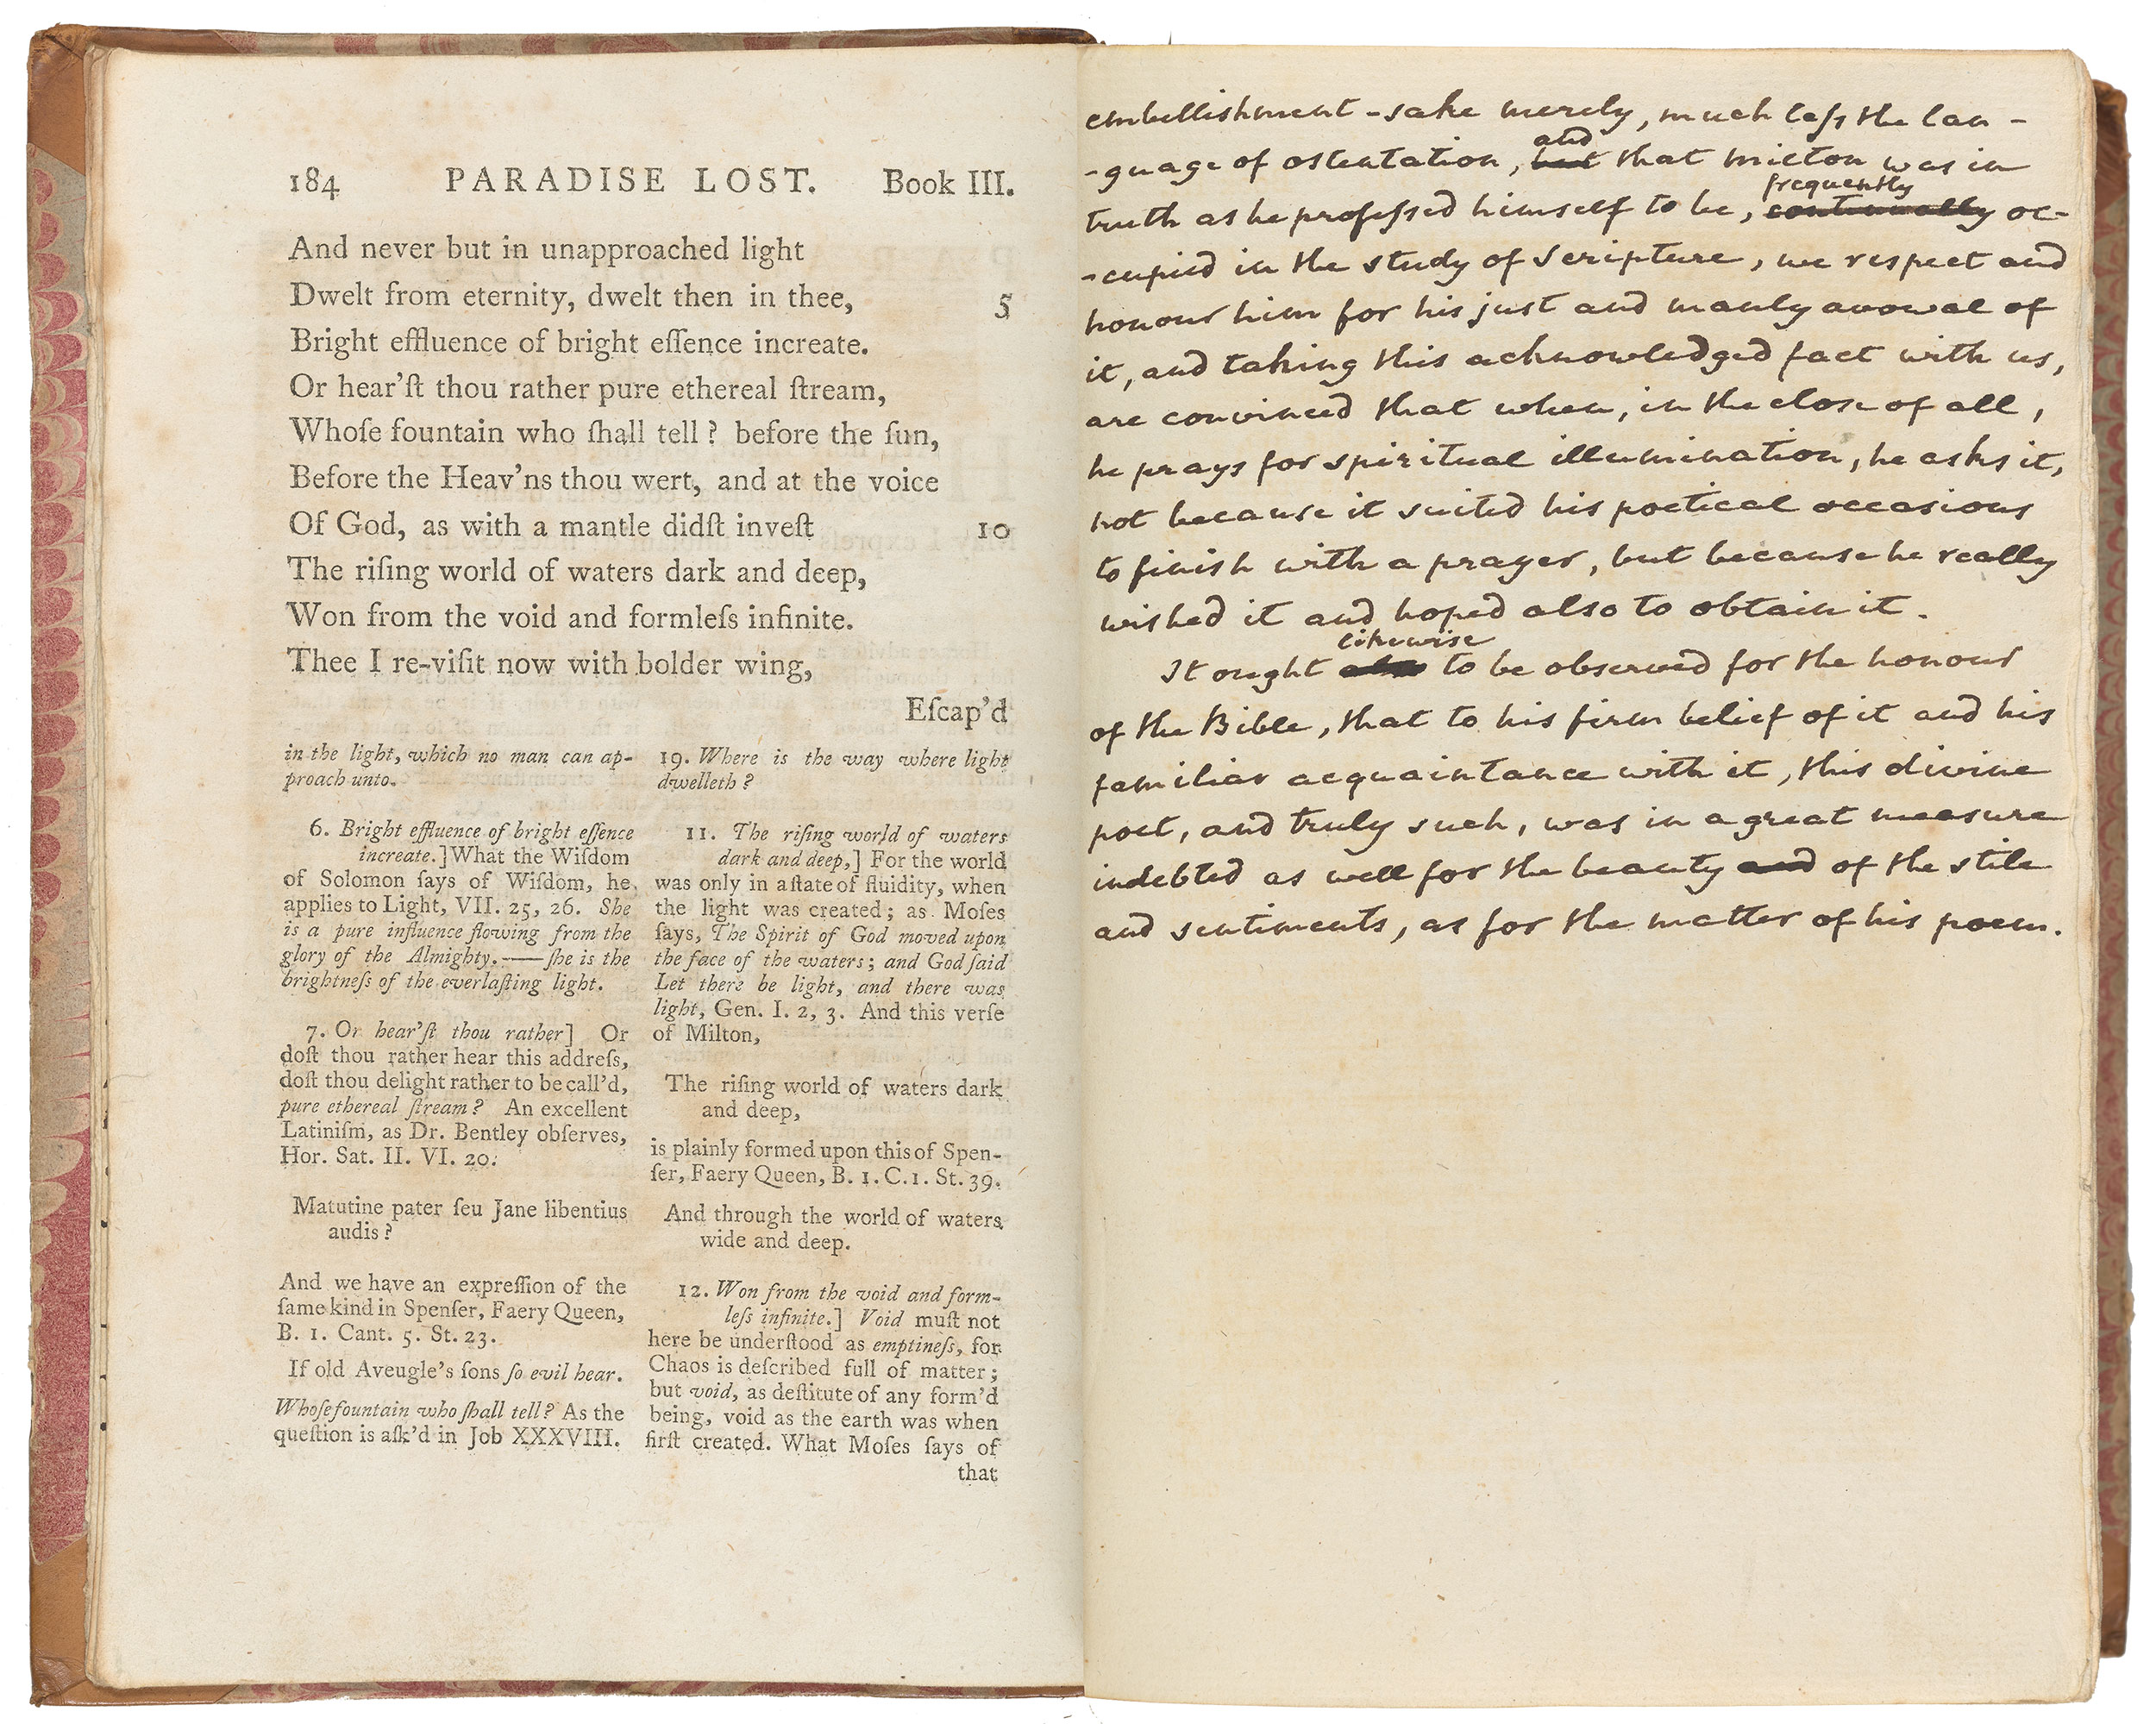 184 PARADISE LOST. Book III.
And never but in unapproached light
Dwelt from eternity, dwelt then in thee, 5
Bright effluence of bright eſſence increate.
Or hear'ſt thou rather pure ethereal ſtream,
Whoſe fountain who ſhall tell? before the ſun,
Before the Heav'ns thou wert, and at the voice
Of God, as with a mantle didſt inveſt 10
The riſing world of waters dark and deep,
Won from the void and formleſs infinite.
Thee I re-viſit now with bolder wing,
Eſcap'd
in the light, which no man can ap-
proach unto.
6. Bright effluence of bright eſſence
increate.] What the Wiſdom
of Solomon ſays of Wiſdom, he
applies to Light, VII. 25, 26. She
is a pure influence flowing from the
glory of the Almighty.——ſhe is the
brightneſs of the everlaſting light.
7. Or hear'ſt thou rather] Or
doſt thou rather hear this addreſs,
doſt thou delight rather to be call'd,
pure ethereal ſtream? An excellent
Latiniſm, as Dr. Bentley obſerves,
Hor. Sat. II. VI. 20.
Matutine pater ſeu Jane libentius
audis?
And we have an expreſſion of the
ſame kind in Spenſer, Faery Queen,
B. 1. Cant. 5. St. 23.
If old Aveugle's ſons ſo evil hear.
Whoſe fountain who ſhall tell? As the
queſtion is aſk'd in Job XXXVIII.
19. Where is the way where light
dwelleth?
11. The riſing world of waters
dark and deep,] For the world
was only in a ſtate of fluidity, when
the light was created; as Moſes
ſays, The Spirit of God moved upon
the face of the waters; and God ſaid
Let there be light, and there was
light, Gen. I. 2, 3. And this verſe
of Milton,
The riſing world of waters dark
and deep,
is plainly formed upon this of Spen-
ſer, Faery Queen, B. 1. C. 1. St. 39.
And through the world of waters
wide and deep.
12. Won from the void and form-
leſs infinite.] Void muſt not
here be underſtood as emptineſs, for
Chaos is deſcribed full of matter;
but void, as deſtitute of any form'd
being, void as the earth was when
firſt created. What Moſes ſays of
that
embellishment-sake merely, much leſs the lan-
and
-guage of ostentation, but that Milton was in
frequently
truth as he profeſsed himself to be, continually oc-
-cupied in the study of Scripture, we respect and
honour him for his just and manly avowal of
it, and taking this acknowledged fact with us,
are convinced that when, in the close of all,
he prays for spiritual illumination, he asks it,
not because it suited his poetical occasions
to finish with a prayer, but because he really
wished it and hoped also to obtain it.
likewise
It ought also to be observed for the honour
of the Bible, that to his firm belief of it and his
familiar acquaintance with it, this divine
poet, and truly such, was in a great measure
indebted as well for the beauty and of the stile
and sentiments, as for the matter of his poem.